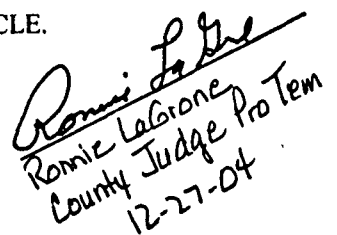 CLE.
Ronnie LaGrone
Ronnie LaGrone
County Judge Pro Tem
12-27-04